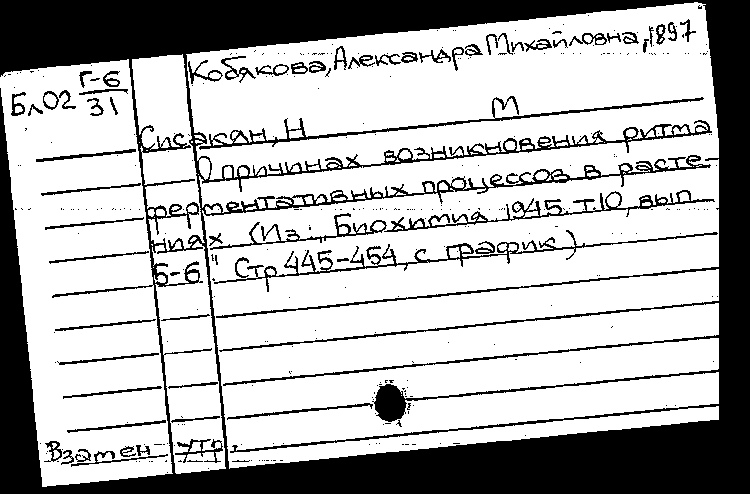 Кобякова, Александра Михайловна, 1897
Бл02 Г-6
31
Сисакян, Н М
О причинах возникновения ритма
ферментативных процессов в расте-
ниях (Из: „Биохимия 1945 т.10, вып
5-6" Стр. 445-454, с график)
Взамен утр.